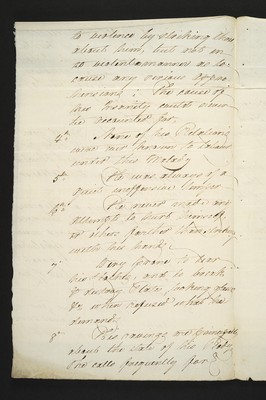 to violence by striking those
about him, but not in
so violent a manner as to
cause any serious appre
hensions: The cause of
his Insanity cannot now
be accounted for.
4th None of his Relations
were ever known to labour
under this Malady
5th He was always of a
quiet inoffensive temper
6th He never made any
attempts to hurt himself
or others further than striking
with his hand.
7 Very prone to tear
his cloaths, and to break
& destroy Plates, Glass
&c when refused what he
demands.
8th His ravings are principally
about the state of his
he calls frequently for